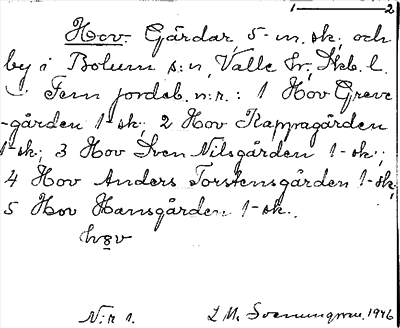 1 — 2
Hov. Gårdar 5-m. sk. och
by i Bolum s:n, Valle hr, Skb. l.
Fem jordeb. n:r.: 1 Hov Greve
-gården 1-sk., 2 Hov Kappagården
1-sk., 3 Hov Sven Nilsgården 1-sk.,
4 Hov Anders Torstensgården 1-sk.,
5 Hov Hansgården 1-sk.
N:r 1. L. M. 1946